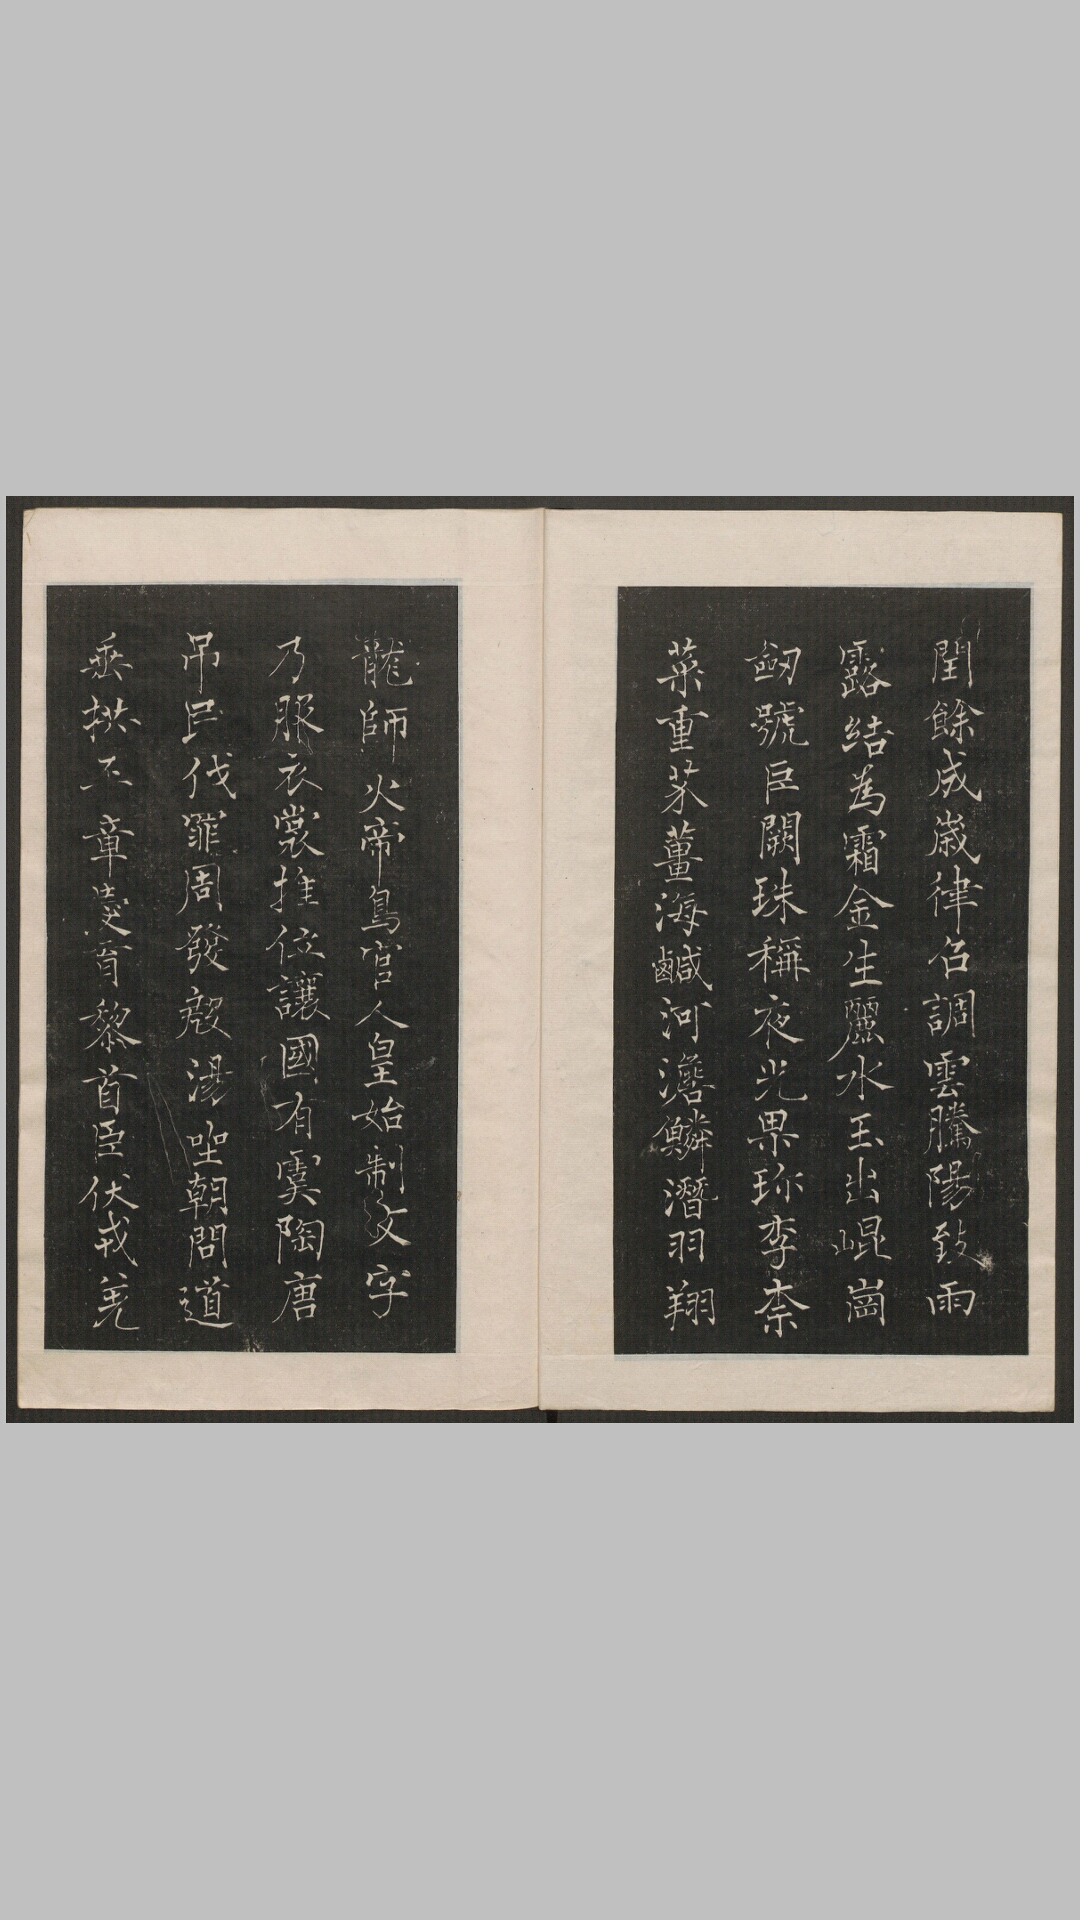 閏餘成歲律召調雲騰陽致雨
露結為霜金生麗水玉出崐崗
劒號巨闕珠稱夜光果珎李柰
菜重芥薑海鹹河澹鱗潛羽翔
龍師火帝鳥官人皇始制文字
乃服衣裳推位讓國有虞陶唐
吊民伐罪周發殷湯坐朝問道
垂拱平章愛育黎首臣伏戎羌